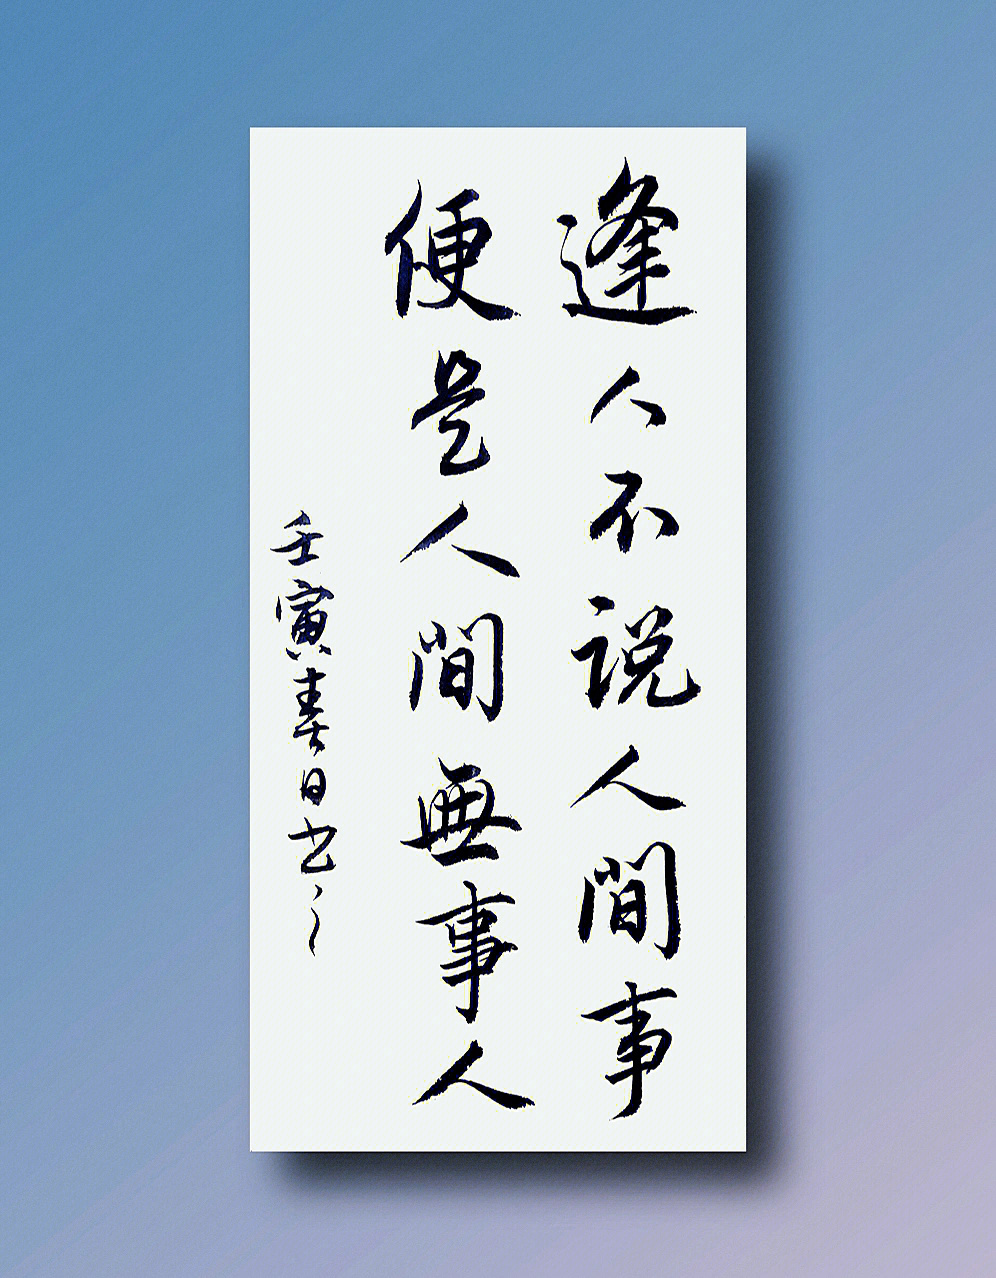 逢人不说人間事
便是人間無事人
壬寅春日书